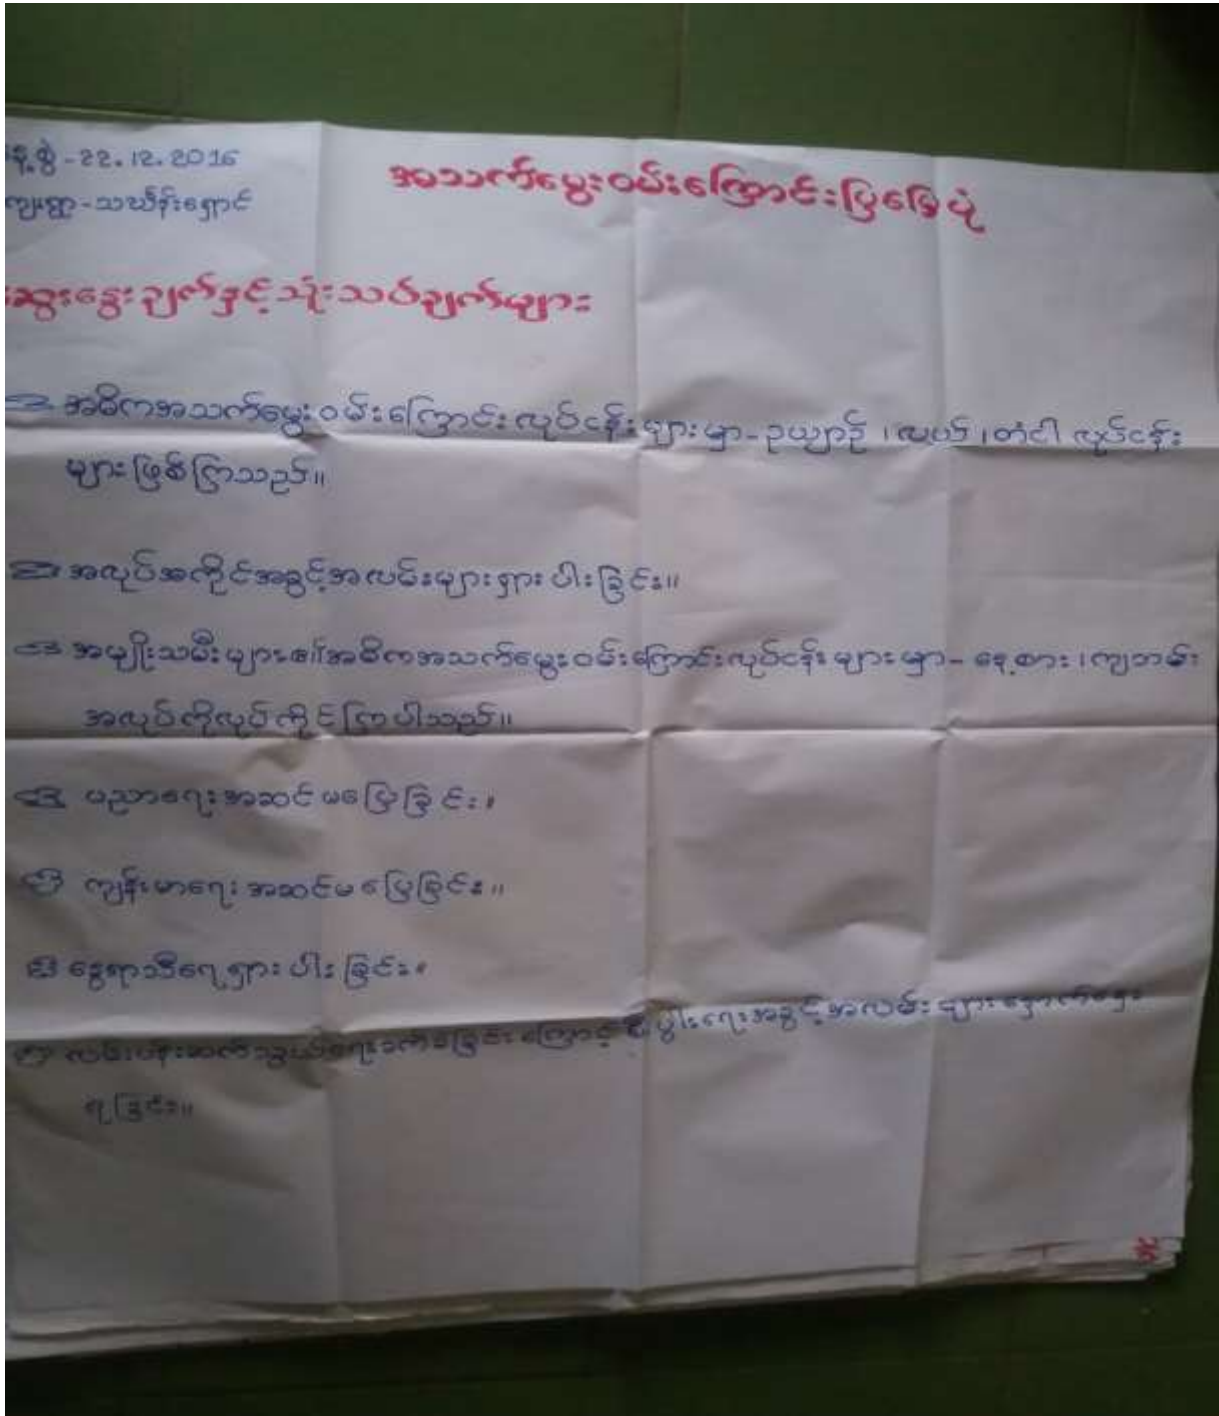 နေ့စွဲ-22.12.2016
ကျေးရွာ-သင်္ဃန်းရှောင်
အသက်မွေးဝမ်းကြောင်းပြမြေပုံ
ဆွေးနွေးချက်နှင့်သုံးသပ်ချက်များ
၁။ အဓိကအသက်မွေးဝမ်းကြောင်းလုပ်ငန်းများမှာ-ဥယျာဉ်၊လယ်၊တံငါ လုပ်ငန်း
များဖြစ်ကြသည်။
၂။ အလုပ်အကိုင်အခွင့်အလမ်းများရှားပါးခြင်း။
၃။ အမျိုးသမီးများ၏အဓိကအသက်မွေးဝမ်းကြောင်းလုပ်ငန်းများမှာ-နေ့စား၊ကျဘမ်း
အလုပ်ကိုလုပ်ကိုင်ကြပါသည်။
၄။ ပညာရေးအဆင်မပြေခြင်း။
၅။ ကျန်းမာရေးအဆင်မပြေခြင်း။
၆။ နွေရာသီရေရှားပါးခြင်း။
၇။ လမ်းပန်းဆက်သွယ်ရေးခက်ခဲခြင်းကြောင့် စီးပွါးရေးအခွင့်အလမ်းများနှောက်နှေး
ရခြင်း။